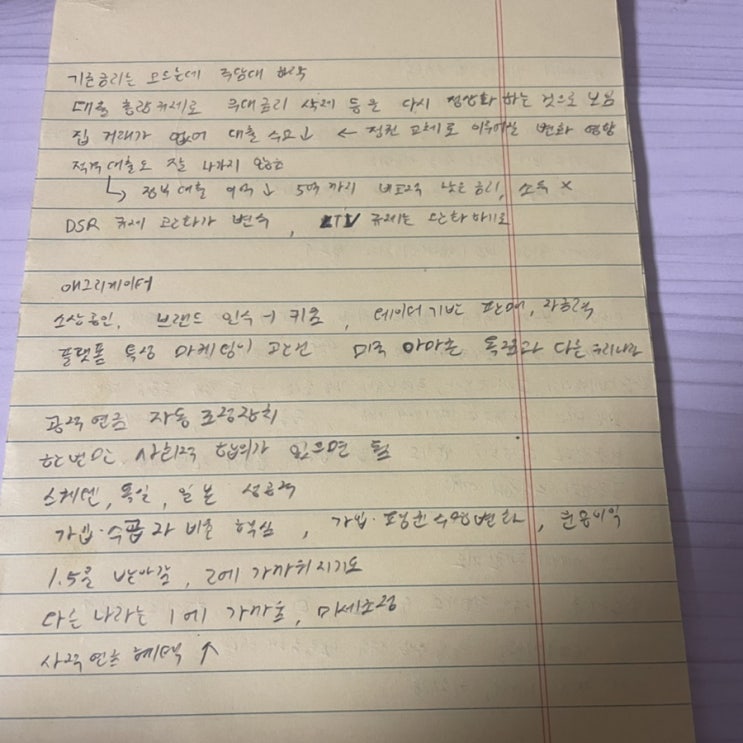 기준금리는 모르는데 주담대 하락
대출 총량규제로 우대금리 삭제 등을 다시 정상화 하는 것으로 보임
집 거래가 없어 대출수요↓ ← 정권 교체로 이루어질 변화 영향
정책대출도 잘 나가지 않음
↳ 정부대출 여력↓ 5억까지 비교적 낮은 금리, 소득 X
DSR 규제 강화가 변수, LTV 규제는 완화하기로
애그리게이터
소상공인, 브랜드 인수 → 키움, 데이터기반 판매, 자회적
플랫폼 특성 마케팅이 관건 미국 아마존 독점과 다른 우리나라
공적연금 자동조정장치
한번만 사회적 합의가 있으면 됨
스웨덴, 독일, 일본 성공적
가입·수급자 비율 핵심, 가입·평균수명변화, 운용이익
1.5를 받아감, 2에 가까워지기도
다른 나라는 1에 가까움, 미세조정
사적연금 혜택 ↑